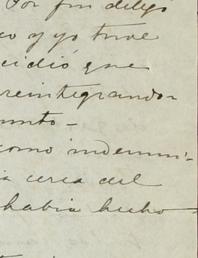 Por fin dilijo
co y yo tuve
cidió que
reintegrando-
unto-
como indemni-
a cerca del
habia hecho